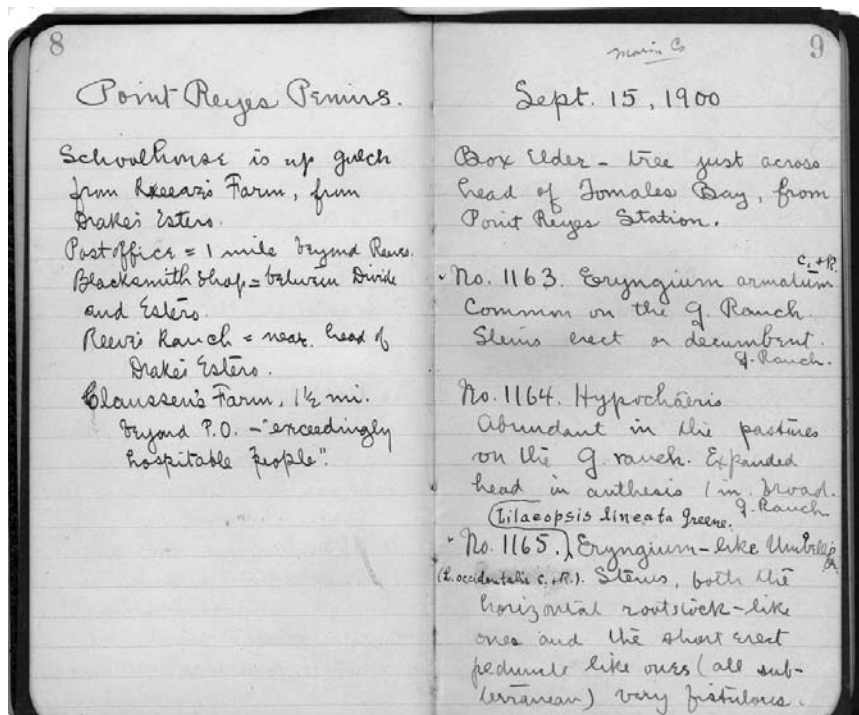 8
Point Reyes Penins.
Schoolhouse is up gulch
from Farm, from
Drake's Estero.
Post office = 1 mile beyond Reeves.
Blacksmith Shop = between Divide
and Estero.
Reeve's Ranch = near head of
Drake's Estero.
Claussen's Farm, 1½ mi.
beyond P.O. – "exceedingly
hospitable people".
Marin Co
9
Sept. 15, 1900
Box Elder – tree just across
head of Tomales Bay, from
Point Reyes Station.
C. + R.
No. 1163. Eryngium armatum
Common on the G. Ranch.
Stems erect or decumbent.
G. Ranch.
No. 1164. Hypochaeris
Abundant in the pastures
on the G. ranch. Expanded
head in anthesis 1 in. broad.
G. Ranch
(Lilaeopsis lineata Greene.
No. 1165.) Eryngium-like
(L. occidentalis C. + R.). Stems, both the
horizontal rootstock-like
ones and the short erect
peduncle like ones (all sub-
terranean) very fistulous.